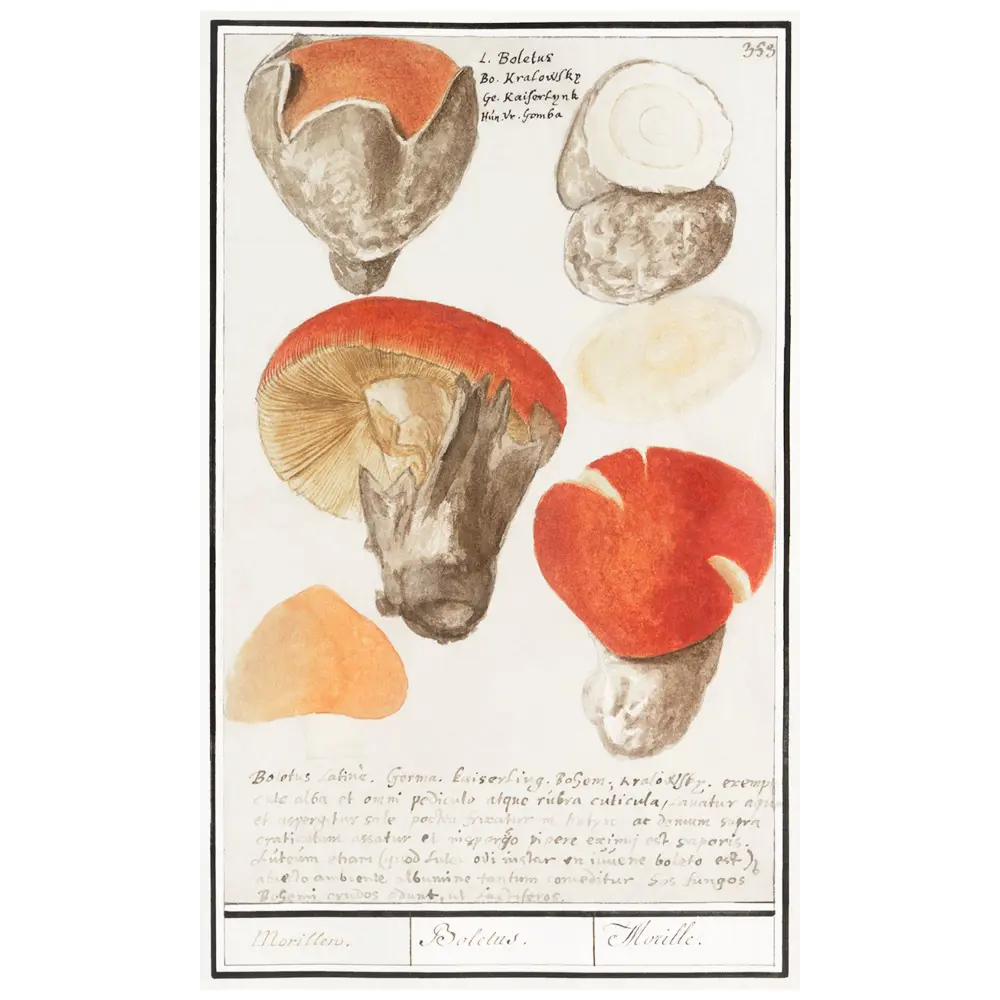 353
L. Boletus
Bo. Kralowsky
Ge. Kaiserlynk
Hún. Vr. Gomba
Boletus Latinè. Germa. Kaiserling. Bohem; Kralowsky. exempt
cute alba et omni pediculo atque rúbra cuticula, lauatur aqua
et aspergitur sale postea frixatur in butyro ac demum supra
craticulam assatur et pipere eximij est saporis.
Lúteum etiam (quod lutei oui instar en iúuene boleto est)
ambiente albumine tantum comeditur hos fungos
Bohemi crudos edunt, ut
Morillen.
Boletus.
Morille.